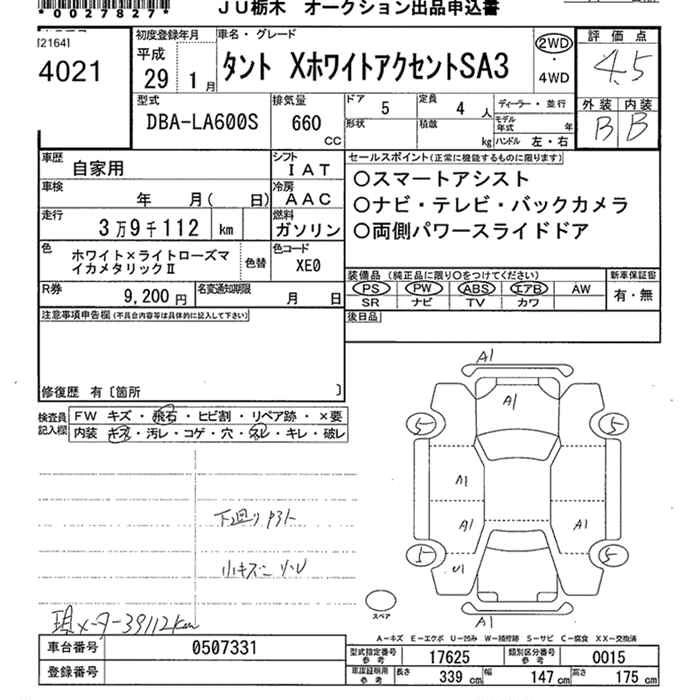 *0027827*
ＪＵ栃木　オークション出品申込書
[2164]
4021
初度登録年月
平成
29 1月
車名・グレード
タント Xホワイトアクセント SA3
2WD
・
4WD
評価点
4.5
外装 内装
B B
型式
DBA-LA600S
排気量
660
CC
ドア 5
形状
定員 4 人
積載 kg
ディーラー・並行
モデル年式 年
ハンドル 左・右
車歴 自家用
シフト IAT
車検 年 月( 日)
冷房 AAC
走行 3万9千112 km
燃料 ガソリン
色 ホワイト×ライトローズマイカメタリックⅡ
色替
色コード XE0
R券 9,200円
名変通知期限 月 日
セールスポイント(正常に機能するものに限ります)
○スマートアシスト
○ナビ・テレビ・バックカメラ
○両側パワースライドドア
装備品 (純正品に限り○をつけてください)
PS PW ABS エアB AW
SR ナビ TV カワ
新車保証書
有・無
後日品
注意事項申告欄(不具合内容等は具体的に記入して下さい)
修復歴 有〔箇所 〕
検査員記入欄
FW キズ・飛石・ヒビ割・リペア跡・×要
内装 キズ・汚レ・コゲ・穴・スレ・キレ・破レ
下廻り
小キズ
現メーター39112km
A1
A1
5 5
A1
A1 A1
5 5
U1
A1
スペア
A-キズ E-エクボ U-凹み W-補修跡 S-サビ C-腐食 XX-交換済
車台番号 0507331
登録番号
型式指定番号 参考 17625
類別区分番号 参考 0015
車庫証明用 参考 長さ 339 cm 幅 147 cm 高さ 175 cm